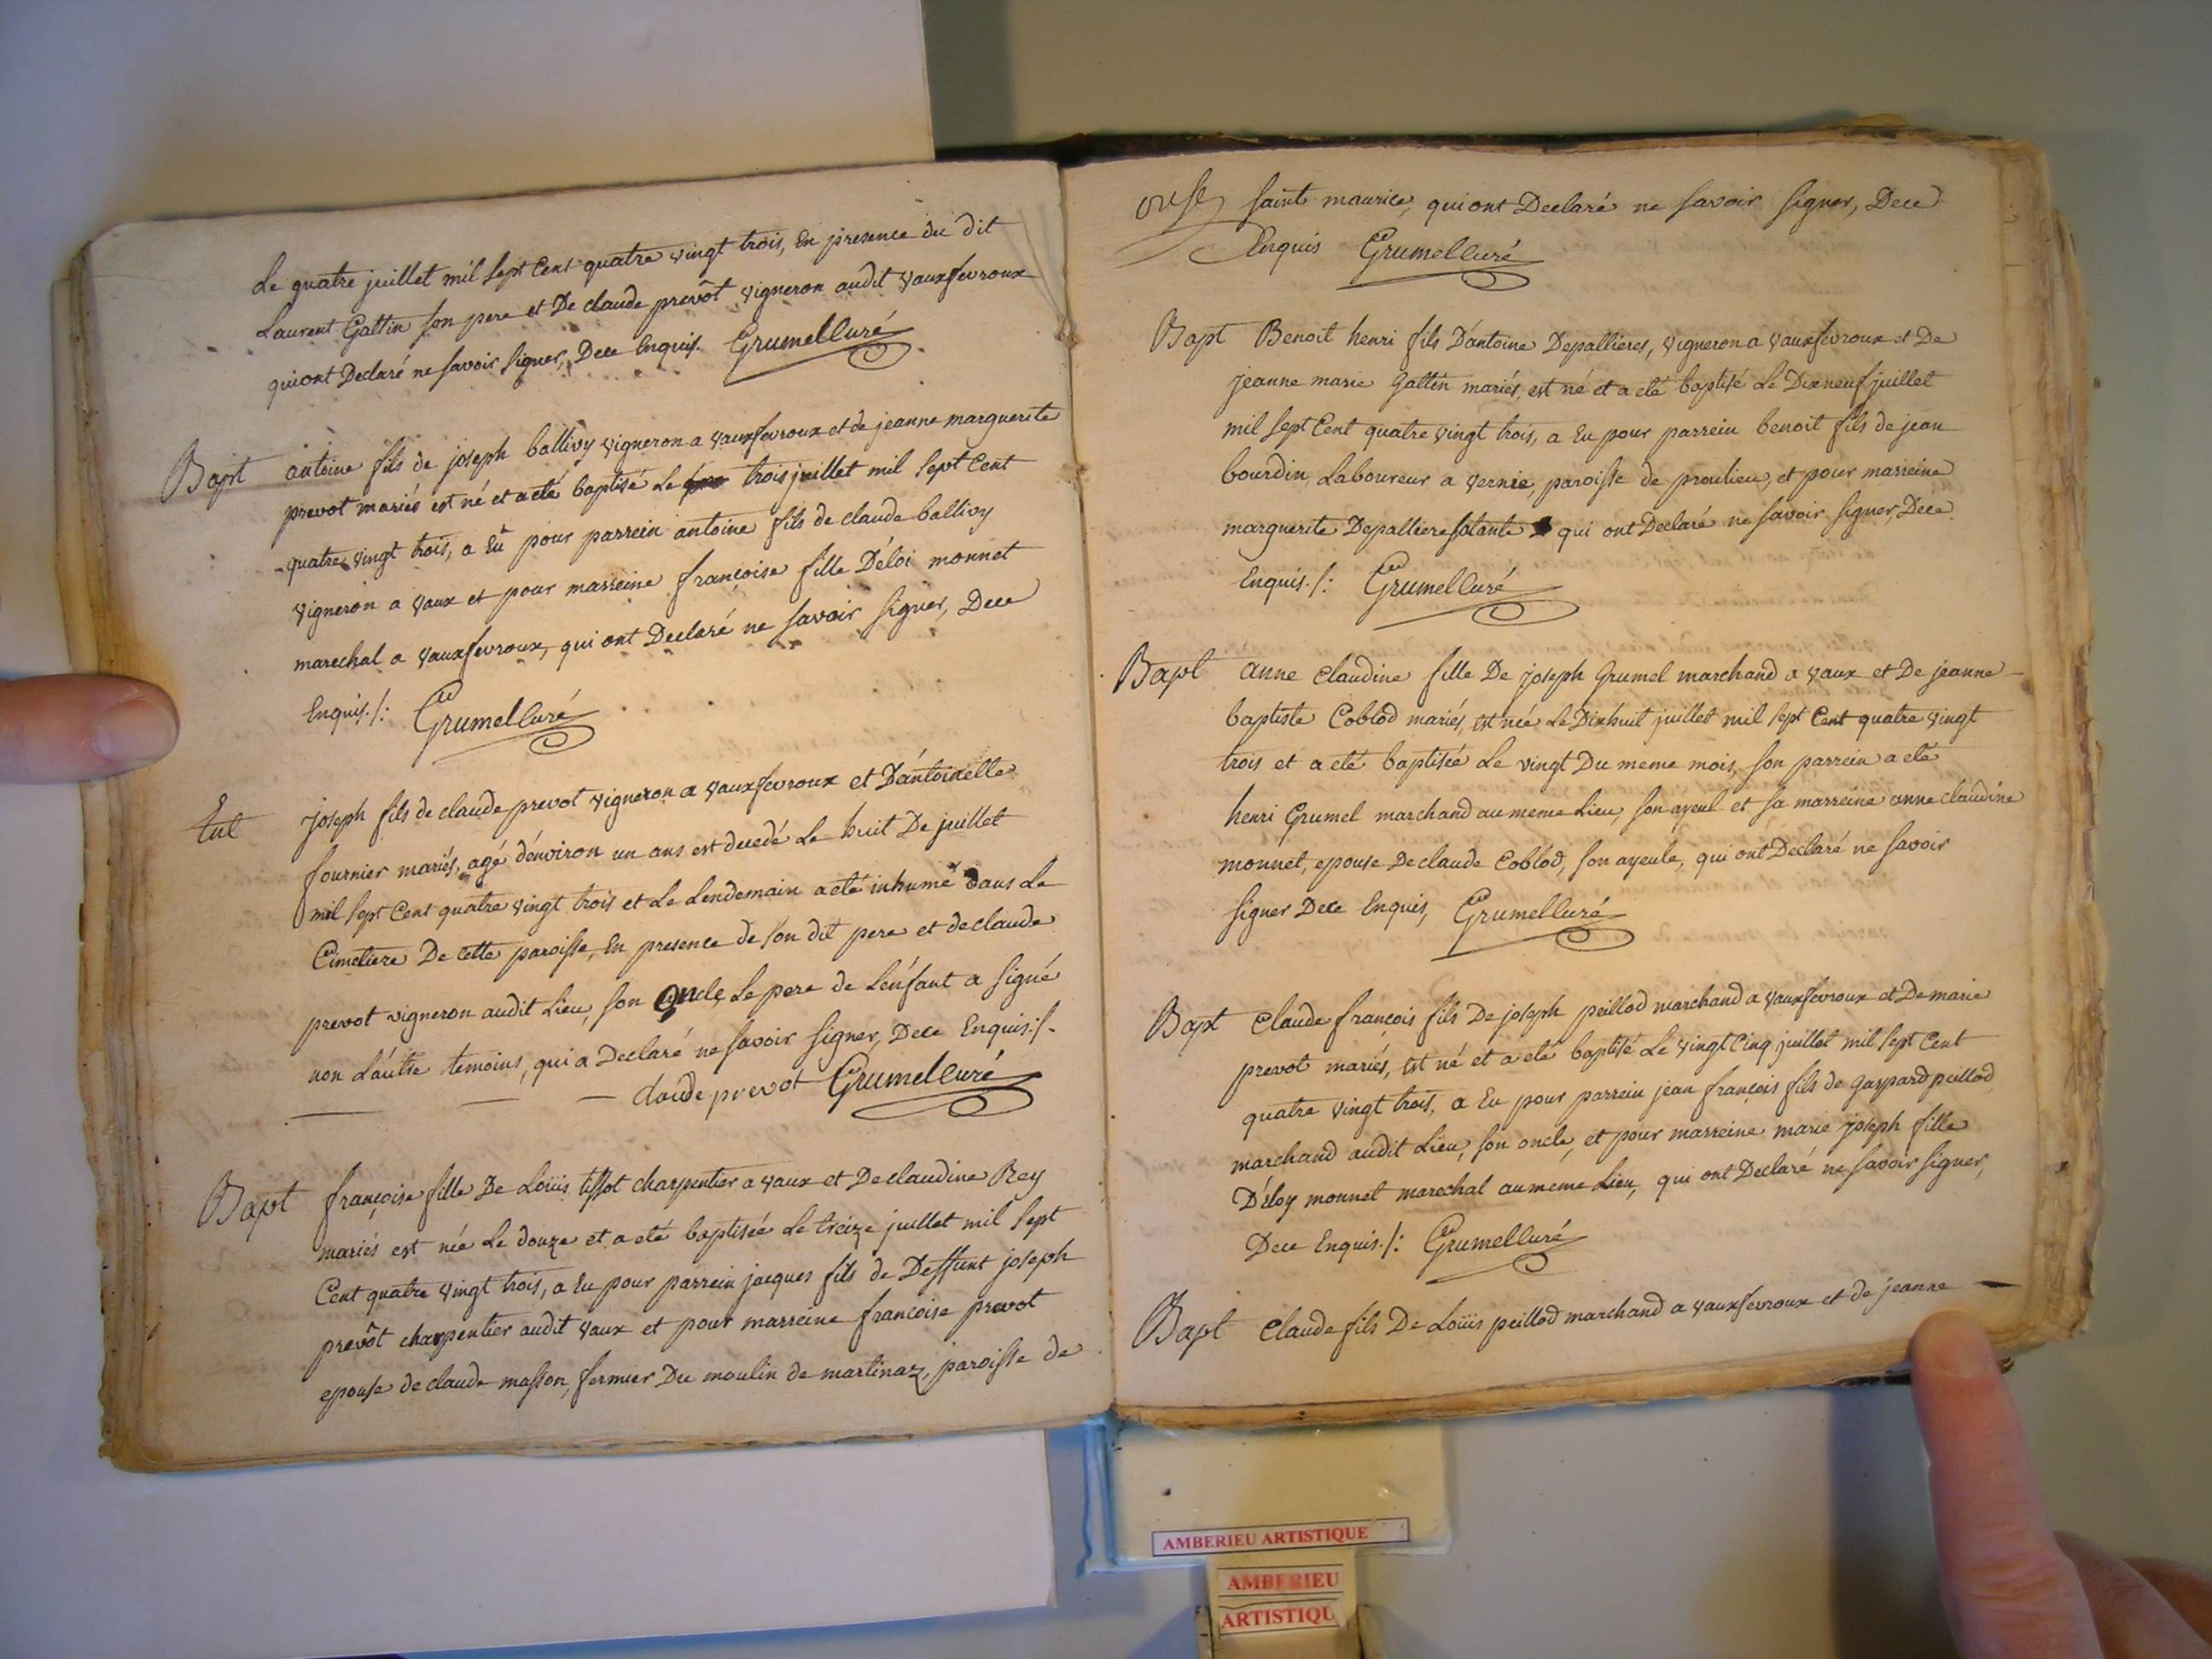 Le quatre juillet mil sept Cent quatre vingt trois, En presence du dit
Laurent Gattin son pere et De claude prevôt vigneron audit vauxfevroux
qui ont Declaré ne savoir signer, Dece Enquis. Grumel Curé
Bapt antoine fils de joseph ballivy vigneron a vauxfevroux et de jeanne marguerite
prevot mariés est né et a eté baptisé Le trois juillet mil sept Cent
quatre vingt trois, a Eu pour parrein antoine fils de claude ballivy
vigneron a vaux et pour marreine françoise fille D'éloi monnet
marechal a vauxfevroux, qui ont Declaré ne savoir signer, Dece
Enquis./: Grumel Curé
Ent joseph fils de claude prevot vigneron a vauxfevroux et D'antoinette
fournier mariés, agé d'environ un ans est decedé Le huit De juillet
mil sept Cent quatre vingt trois et Le Lendemain a eté inhumé Dans Le
Cimetiere De cette paroisse, En presence de son dit pere et de claude
prevot vigneron audit Lieu, son oncle, Le pere de L'enfant a signé
non L'autre temoins, qui a Declaré ne savoir signer, Dece Enquis./.
claude prevot Grumel Curé
Bapt françoise fille De Loüis tissot charpentier a vaux et De claudine Rey
mariés est née Le douze et a eté baptisée Le treize juillet mil sept
Cent quatre vingt trois, a Eu pour parrein jacques fils de Deffunt joseph
prevôt charpentier audit vaux et pour marreine francoise prevot
epouse de claude masson, fermier Du moulin de martinaz, paroisse de
saint maurice, qui ont Declaré ne savoir signer, Dece
Enquis Grumel Curé
Bapt Benoit henri fils D'antoine Depallieres, vigneron a vauxfevroux et De
jeanne marie Gattin mariés, est né et a eté baptisé Le Dixneuf juillet
mil sept Cent quatre vingt trois, a Eu pour parrein benoit fils de jean
bourdin, Laboureur a vernie, paroisse de proulieu, et pour marreine
marguerite Depalliere sa tante qui ont Declaré ne savoir signer, Dece
Enquis./: Grumel Curé
Bapt anne claudine fille De joseph Grumel marchand a vaux et De jeanne
baptiste Coblod mariés, est née Le Dixhuit juillet mil sept Cent quatre vingt
trois et a eté baptisée Le vingt Du meme mois, son parrein a eté
henri Grumel marchand au meme Lieu, son ayeul et sa marreine anne claudine
monnet, epouse De claude Coblod, son ayeule, qui ont Declaré ne savoir
signer Dece Enquis, Grumel Curé
Bapt Claude françois fils De joseph peillod marchand a vauxfevroux et De marie
prevot mariés, est né et a eté baptisé Le vingt Cinq juillet mil sept Cent
quatre vingt trois, a Eu pour parrein jean françois fils de gaspard peillod
marchand audit Lieu, son oncle, et pour marreine marie joseph fille
D'éloy monnet marechal au meme Lieu, qui ont Declaré ne savoir signer,
Dece Enquis./: Grumel Curé
Bapt Claude fils De Loüis peillod marchand a vauxfevroux et de jeanne
AMBERIEU ARTISTIQUE
AMBERIEU
ARTISTIQU